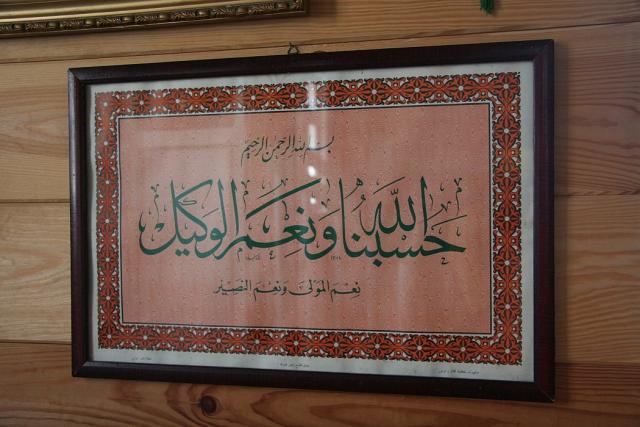 بسم الله الرحمن الرحيم
حسبنا الله ونعم الوكيل
نعم المولى ونعم النصير